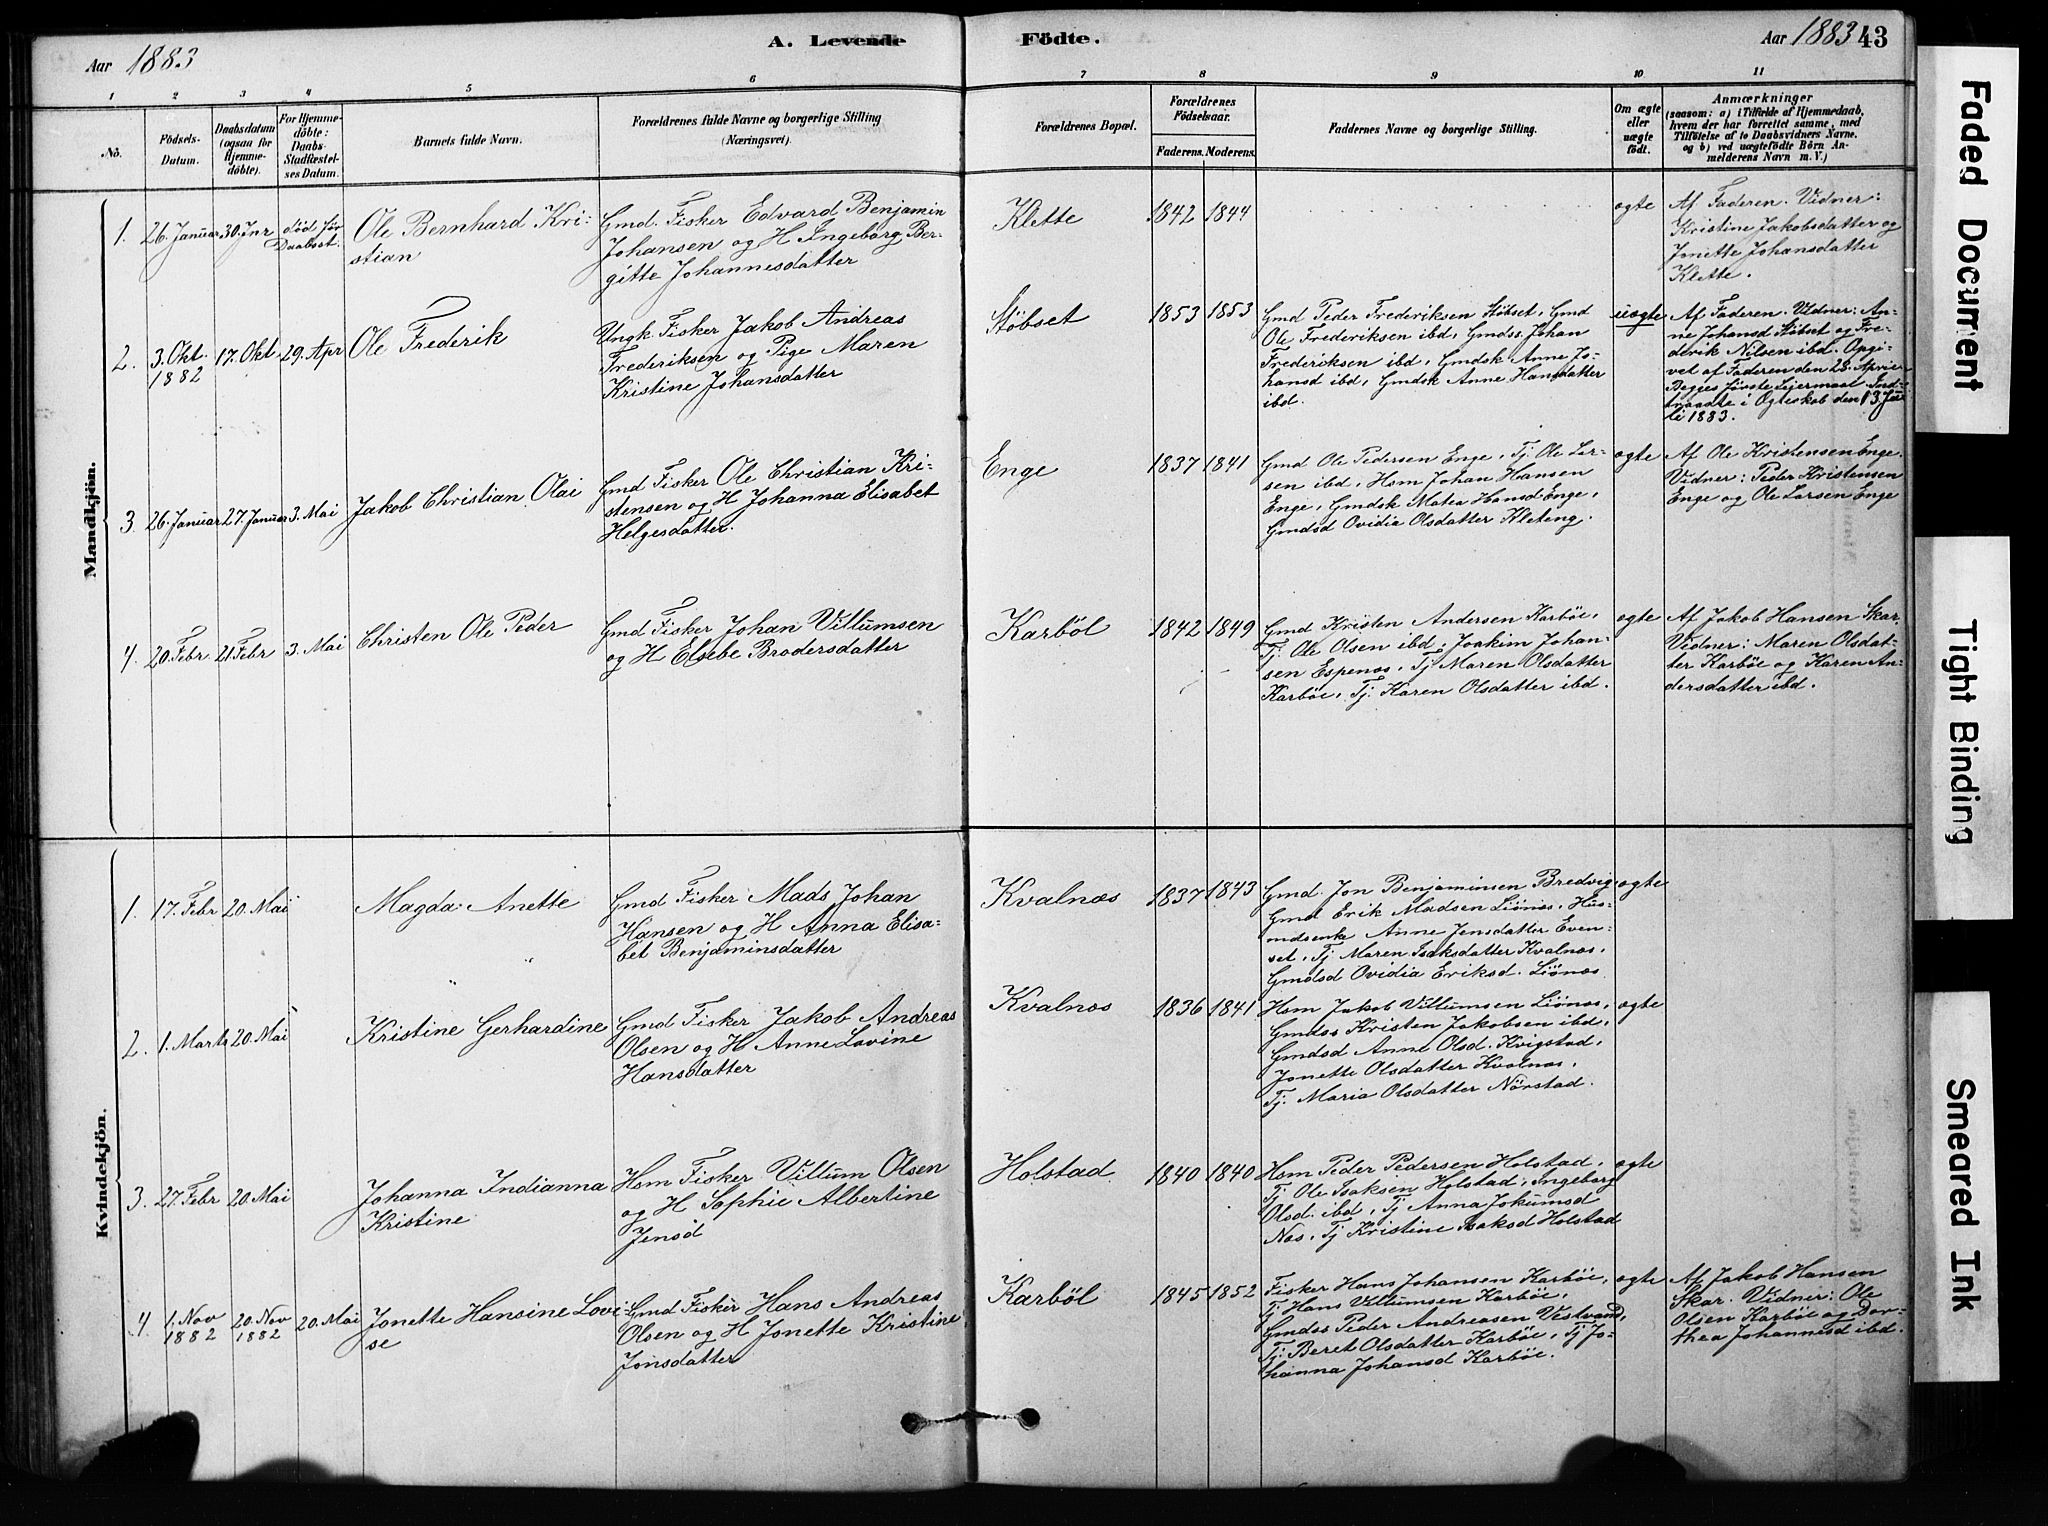 Aar 1883
A. Levende Födte.
Aar 1883
43
1 2 3 4 5 6 7 8 9 10 11
No.
Födsels-
Datum.
Daabsdatum
(ogsaa for
Hjemme-
döbte).
For Hjemme-
döbte:
Daabs-
Stadfæstel-
ses Datum.
Barnets fulde Navn.
Forældrenes fulde Navne og borgerlige Stilling
(Næringsvei).
Forældrenes Bopæl.
Forældrenes
Födselsaar.
Faderens. Moderens.
Faddernes Navne og borgerlige Stilling.
Om ægte
eller
uægte
födt.
Anmærkninger
(saasom: a) i Tilfælde af Hjemmedaab,
hvem der har forrettet samme, med
Tilföielse af to Daabsvidners Navne.
og b) ved uægtefödte Börn An-
melderens Navn m. V.)
Mandkjön.
1. 26. Januar 30. Jnr død før
Daabsst.
Ole Bernhard Kri-
stian
Gmd. Fisker Edvard Benjamin
Johansen og H Ingeborg Ber-
gitte Johannesdatter
Klette
1842 1844
ægte
Af Faderen. Vidner:
Kristine Jakobsdatter og
Jonette Johansdatter
Klette.
2. 3. Okt.
1882
17. Okt. 29. Apr
Ole Frederik
Ungk Fisker Jakob Andreas
Frederiksen og Pige Maren
Kristine Johansdatter
Støbset
1853 1853
Gmd Peder Frederiksen Støbset, Gmd
Ole Frederiksen ibd, Gmdss Johan
Frederiksen ibd, Gmdsk Anne Jo-
hansd ibd, Gmdsk Anne Hansdatter
ibd.
uægte
Af Faderen. Vidner: An-
ne Johansd Støbset og Fre-
derik Nilsen ibd. Opgi-
vet af Faderen den 28. April
Begges første Lejermaal. Ind-
traadte i Ægteskab den 13. Ju-
li 1883.
3. 26. Januar 27. Januar 3. Mai
Jakob Christian Olai
Gmd Fisker Ole Christian Kri-
stensen og H Johanna Elisabet
Helgesdatter.
Enge
1837 1841
Gmd Ole Pedersen Enge, Tj. Ole Lar-
sen ibd, Hsm Johan Hansen
Enge, Gmdsk Matea Hansd Enge,
Gmdsd Ovidia Olsdatter Kleteng.
ægte
Af Ole Kristensen Enge.
Vidner: Peder Kristensen
Enge og Ole Larsen Enge
4. 20. Febr 21 Febr 3. Mai
Christen Ole Peder
Gmd Fisker Johan Villumsen
og H Elsebe Brodersdatter
Karbøl
1842 1849
Gmd Kristen Andersen Karbøe,
Tj. Ole Olsen ibd, Joakim Johan-
sen Espenæs, Tj Maren Olsdatter
Karbøe, Tj. Karen Olsdatter ibd.
ægte
Af Jakob Hansen Skar.
Vidner: Maren Olsdat-
ter Karbøe og Karen An-
dersdatter ibd.
Kvindekjön.
1. 17. Febr 20. Mai
Magda Anette
Gmd Fisker Mads Johan
Hansen og H Anna Elisa-
bet Benjaminsdatter
Kvalnæs
1837 1843
Gmd. Jon Benjaminsen Bredvig,
Gmd Erik Madsen Liønæs, Hus-
mdsenke Anne Jensdatter Even-
set, Tj Maren Isaksdatter Kvalnæs,
Gmdsd Ovidia Eriksd. Liønæs
ægte
2. 1. Marts 20. Mai
Kristine Gerhardine
Gmd Fisker Jakob Andreas
Olsen og H Anne Lovine
Hansdatter
Kvalnæs
1836 1841
Hsm Jakob Villumsen Liønæs,
Gmdss Kristen Jakobsen ibd,
Gmdsd Anne Olsd. Kvigstad,
Jonette Olsdatter Kvalnæs,
Tj. Maria Olsdatter Nørstad.
ægte
3. 27. Febr 20. Mai
Johanna Indianna
Kristine
Hsm Fisker Villum Olsen
og H Sophie Albertine
Jensd
Holstad
1840 1840
Hsm Peder Pedersen Holstad,
Tj Ole Isaksen Holstad, Ingeborg
Olsd. ibd, Tj Anna Jokumsd
Næs, Tj Kristine Isaksd Holstad
ægte
4. 1. Nov
1882
20. Nov
1882
20. Mai
Jonette Hansine Lovi-
se
Gmd Fisker Hans Andreas
Olsen og H Jonette Kristine
Jonsdatter
Karbøl
1845 1852
Fisker Hans Johansen Karbøe,
Tj Hans Villumsen Karbøe,
Gmdss Peder Andreasen Vestvand,
Tj. Beret Olsdatter Karbøe, Tj Jo-
hanna Johansd Karbøe.
ægte
Af Jakob Hansen
Skar. Vidner: Ole
Olsen Karbøe og Dor-
thea Johannesd ibd.
Faded Document
Tight Binding
Smeared Ink